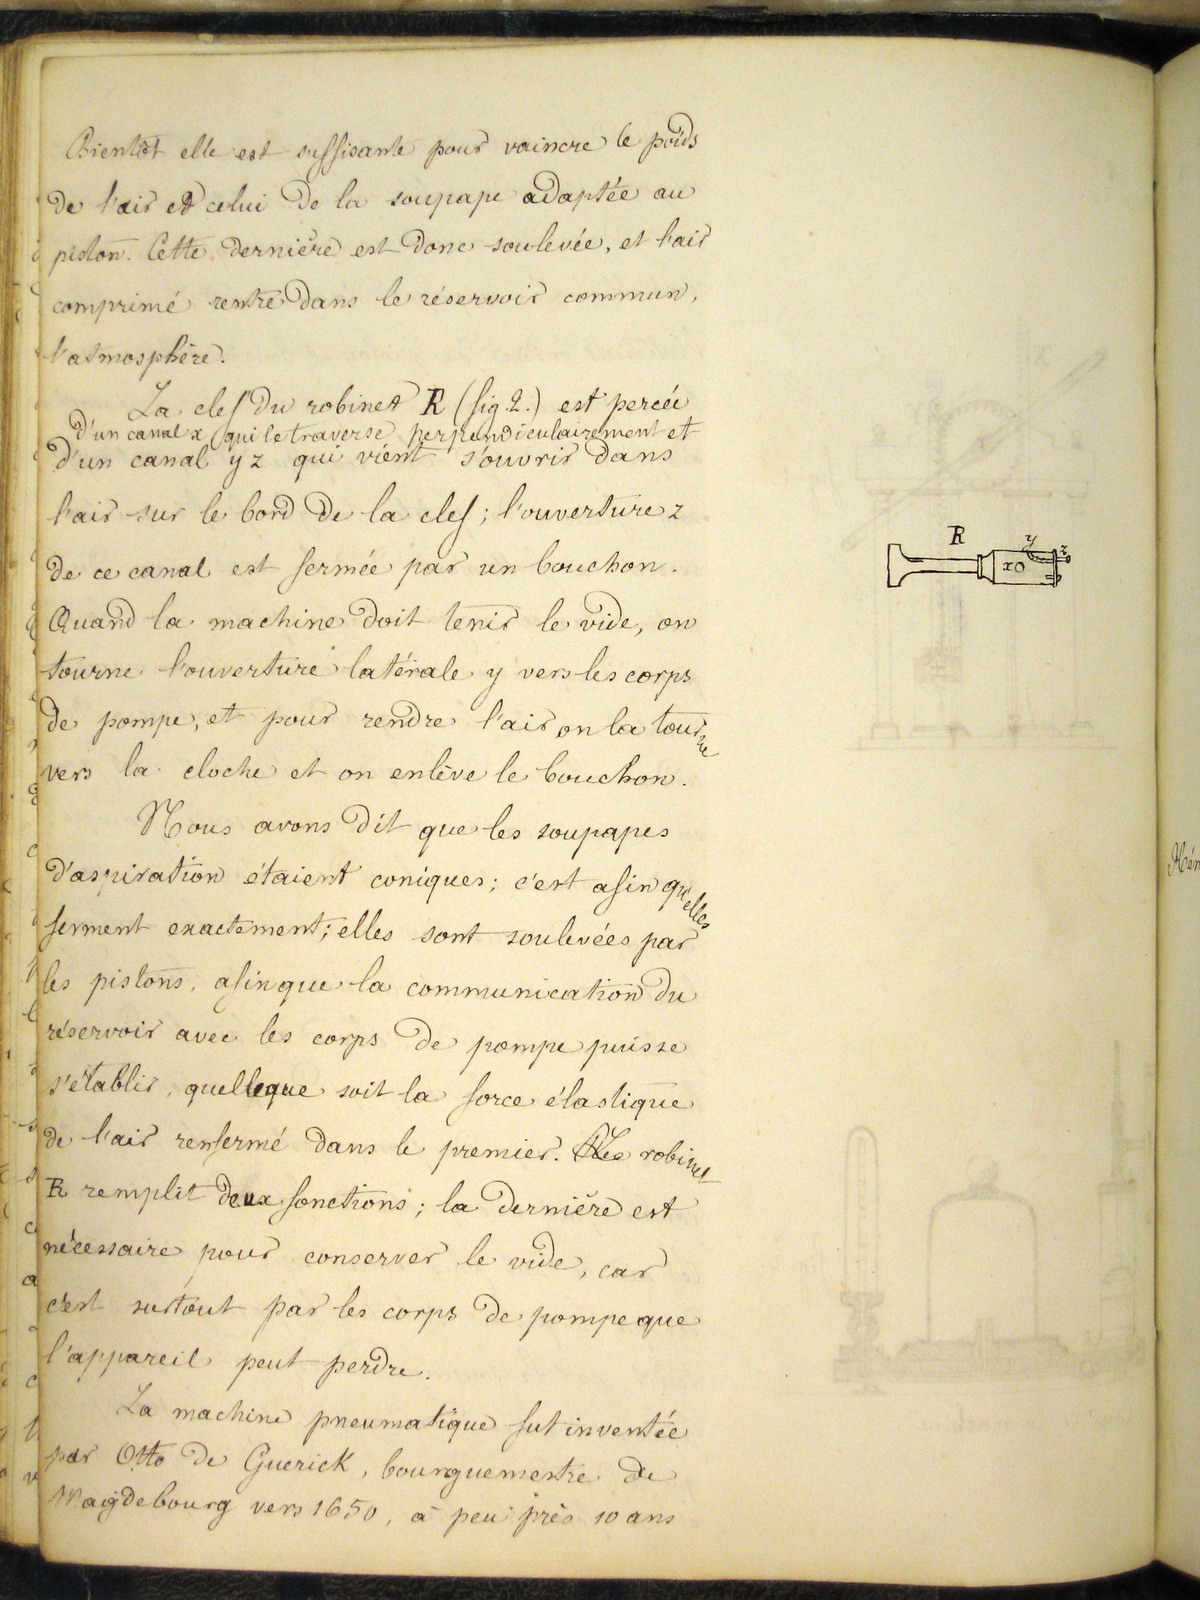 Bientôt elle est suffisante pour vaincre le poids
de l'air et celui de la soupape adaptée au
piston. Cette dernière est donc soulevée, et l'air
comprimé rentre dans le réservoir commun,
l'atmosphère.
La clef du robinet R (fig. 2.) est percée
d'un canal x qui le traverse perpendiculairement et
d'un canal yz qui vient s'ouvrir dans
l'air sur le bord de la clef; l'ouverture z
de ce canal est fermée par un bouchon.
Quand la machine doit tenir le vide, on
tourne l'ouverture latérale y vers les corps
de pompe, et pour rendre l'air, on la tourne
vers la cloche et on enlève le bouchon.
Nous avons dit que les soupapes
d'aspiration étaient coniques; c'est afin qu'elles
ferment exactement; elles sont soulevées par
les pistons, afin que la communication du
réservoir avec les corps de pompe puisse
s'établir, quelleque soit la force élastique
de l'air renfermé dans le premier. Le robinet
R remplit deux fonctions; la dernière est
nécessaire pour conserver le vide, car
c'est surtout par les corps de pompe que
l'appareil peut perdre.
La machine pneumatique fut inventée
par Otto de Guerick, bourguemestre de
Magdebourg vers 1650, à peu près 10 ans
R
y
z
xo